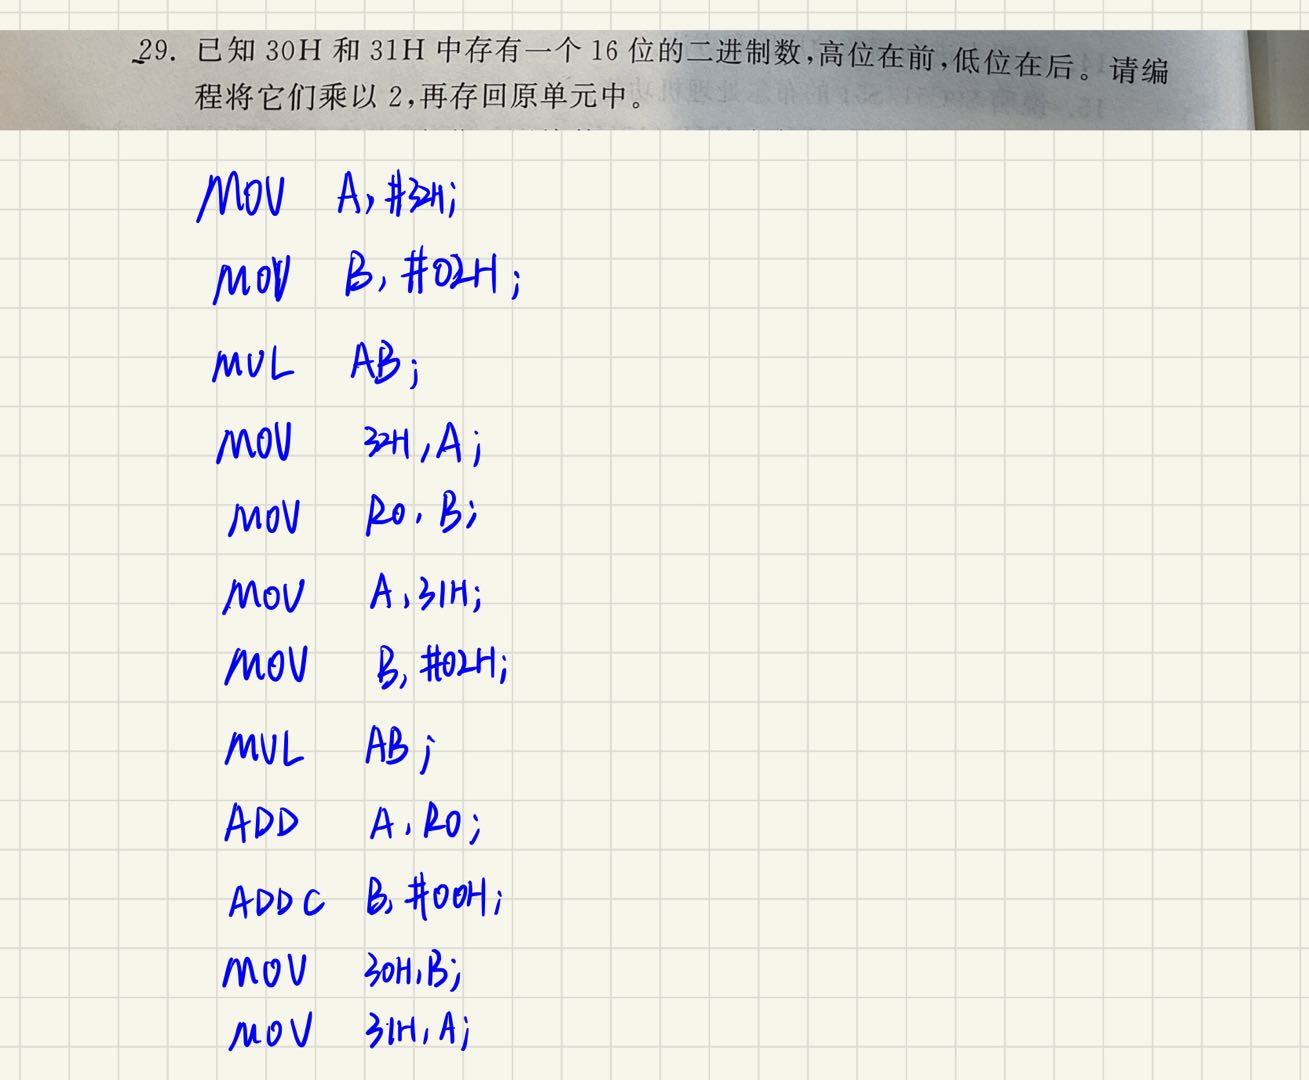 29. 已知 30H 和 31H 中存有一个 16 位的二进制数,高位在前,低位在后。请编
程将它们乘以 2,再存回原单元中。
MOV A, #32H;
MOV B, #02H;
MUL AB;
MOV 32H, A;
MOV R0, B;
MOV A, 31H;
MOV B, #02H;
MUL AB;
ADD A, R0;
ADDC B, #00H;
MOV 30H, B;
MOV 31H, A;